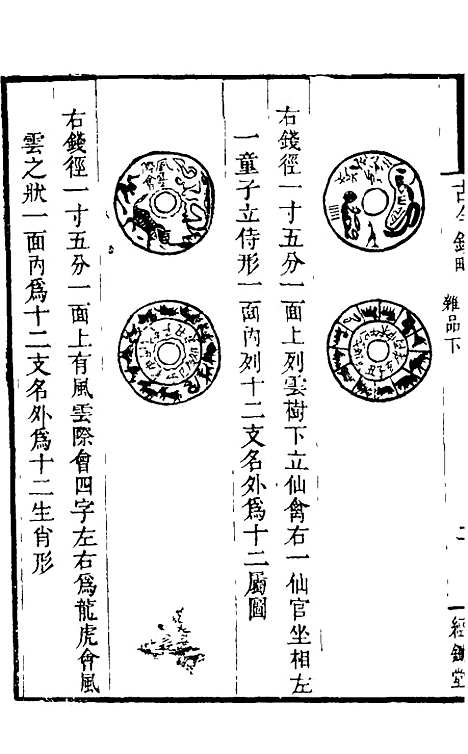 古今錢略
雜品下
經鉏堂
右錢徑一寸五分一面上列雲樹下立仙禽右一仙官坐相左
一童子立侍形一面內列十二支名外爲十二屬圖
風雲際會
右錢徑一寸五分一面上有風雲際會四字左右爲龍虎會風
雲之狀一面內爲十二支名外爲十二生肖形